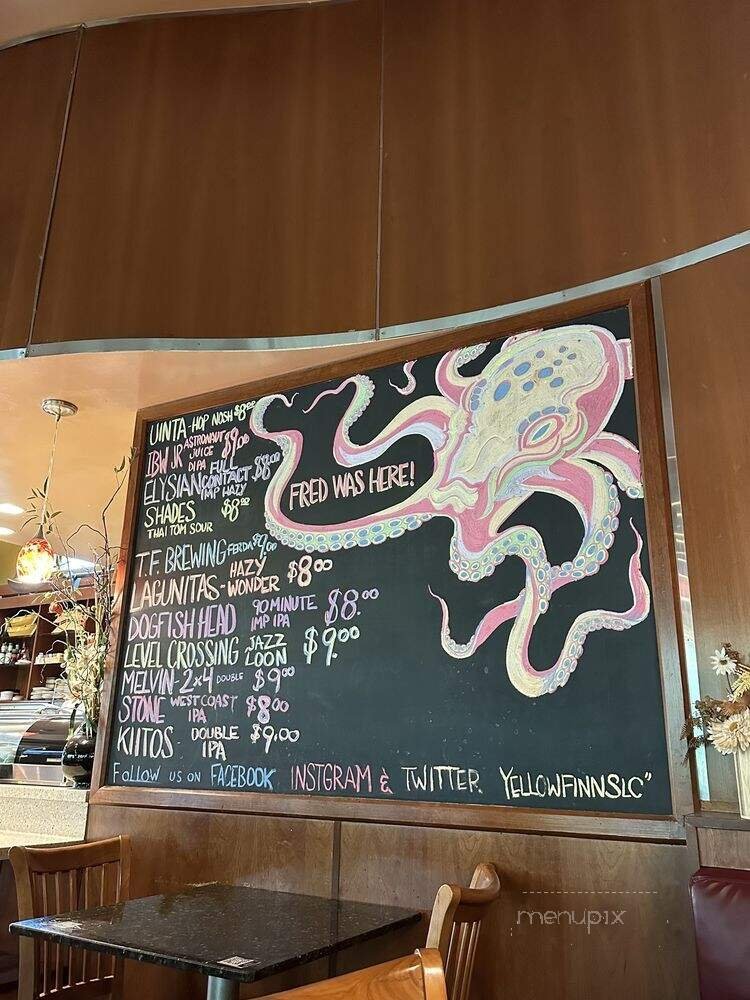 UINTA - HOP NOSH $8.00
IBW JR ASTRONAUT JUICE DIPA $9.00
ELYSIAN FULL CONTACT IMP HAZY $8.00
SHADES $8.00
THAI TOM SOUR
FRED WAS HERE!
T.F BREWING FERDA $9.00
LAGUNITAS - HAZY WONDER $8.00
DOGFISH HEAD 90 MINUTE IMP IPA $8.00
LEVEL CROSSING JAZZ LOON $9.00
MELVIN - 2x4 DOUBLE $9.00
STONE WEST COAST IPA $8.00
KIITOS DOUBLE IPA $9.00
FOLLOW US ON FACEBOOK INSTGRAM & TWITTER. YELLOWFINNSLC"
menupix